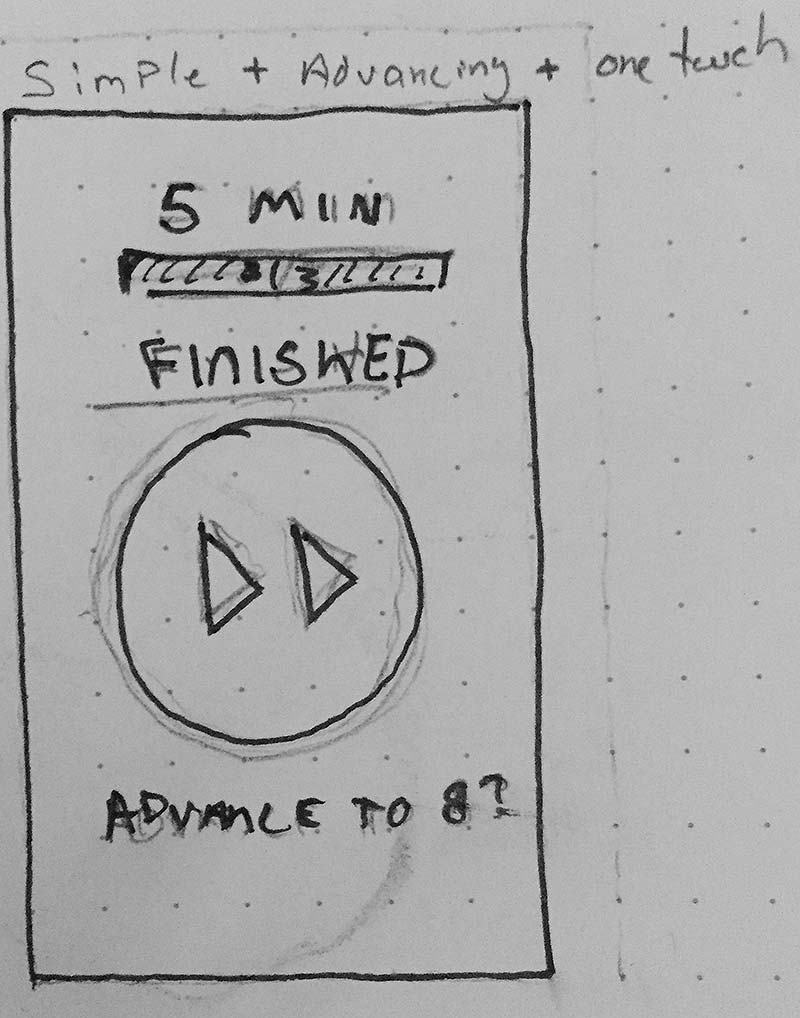 Simple + Advancing + one touch
5 MIN
FINISHED
ADVANCE TO 8?